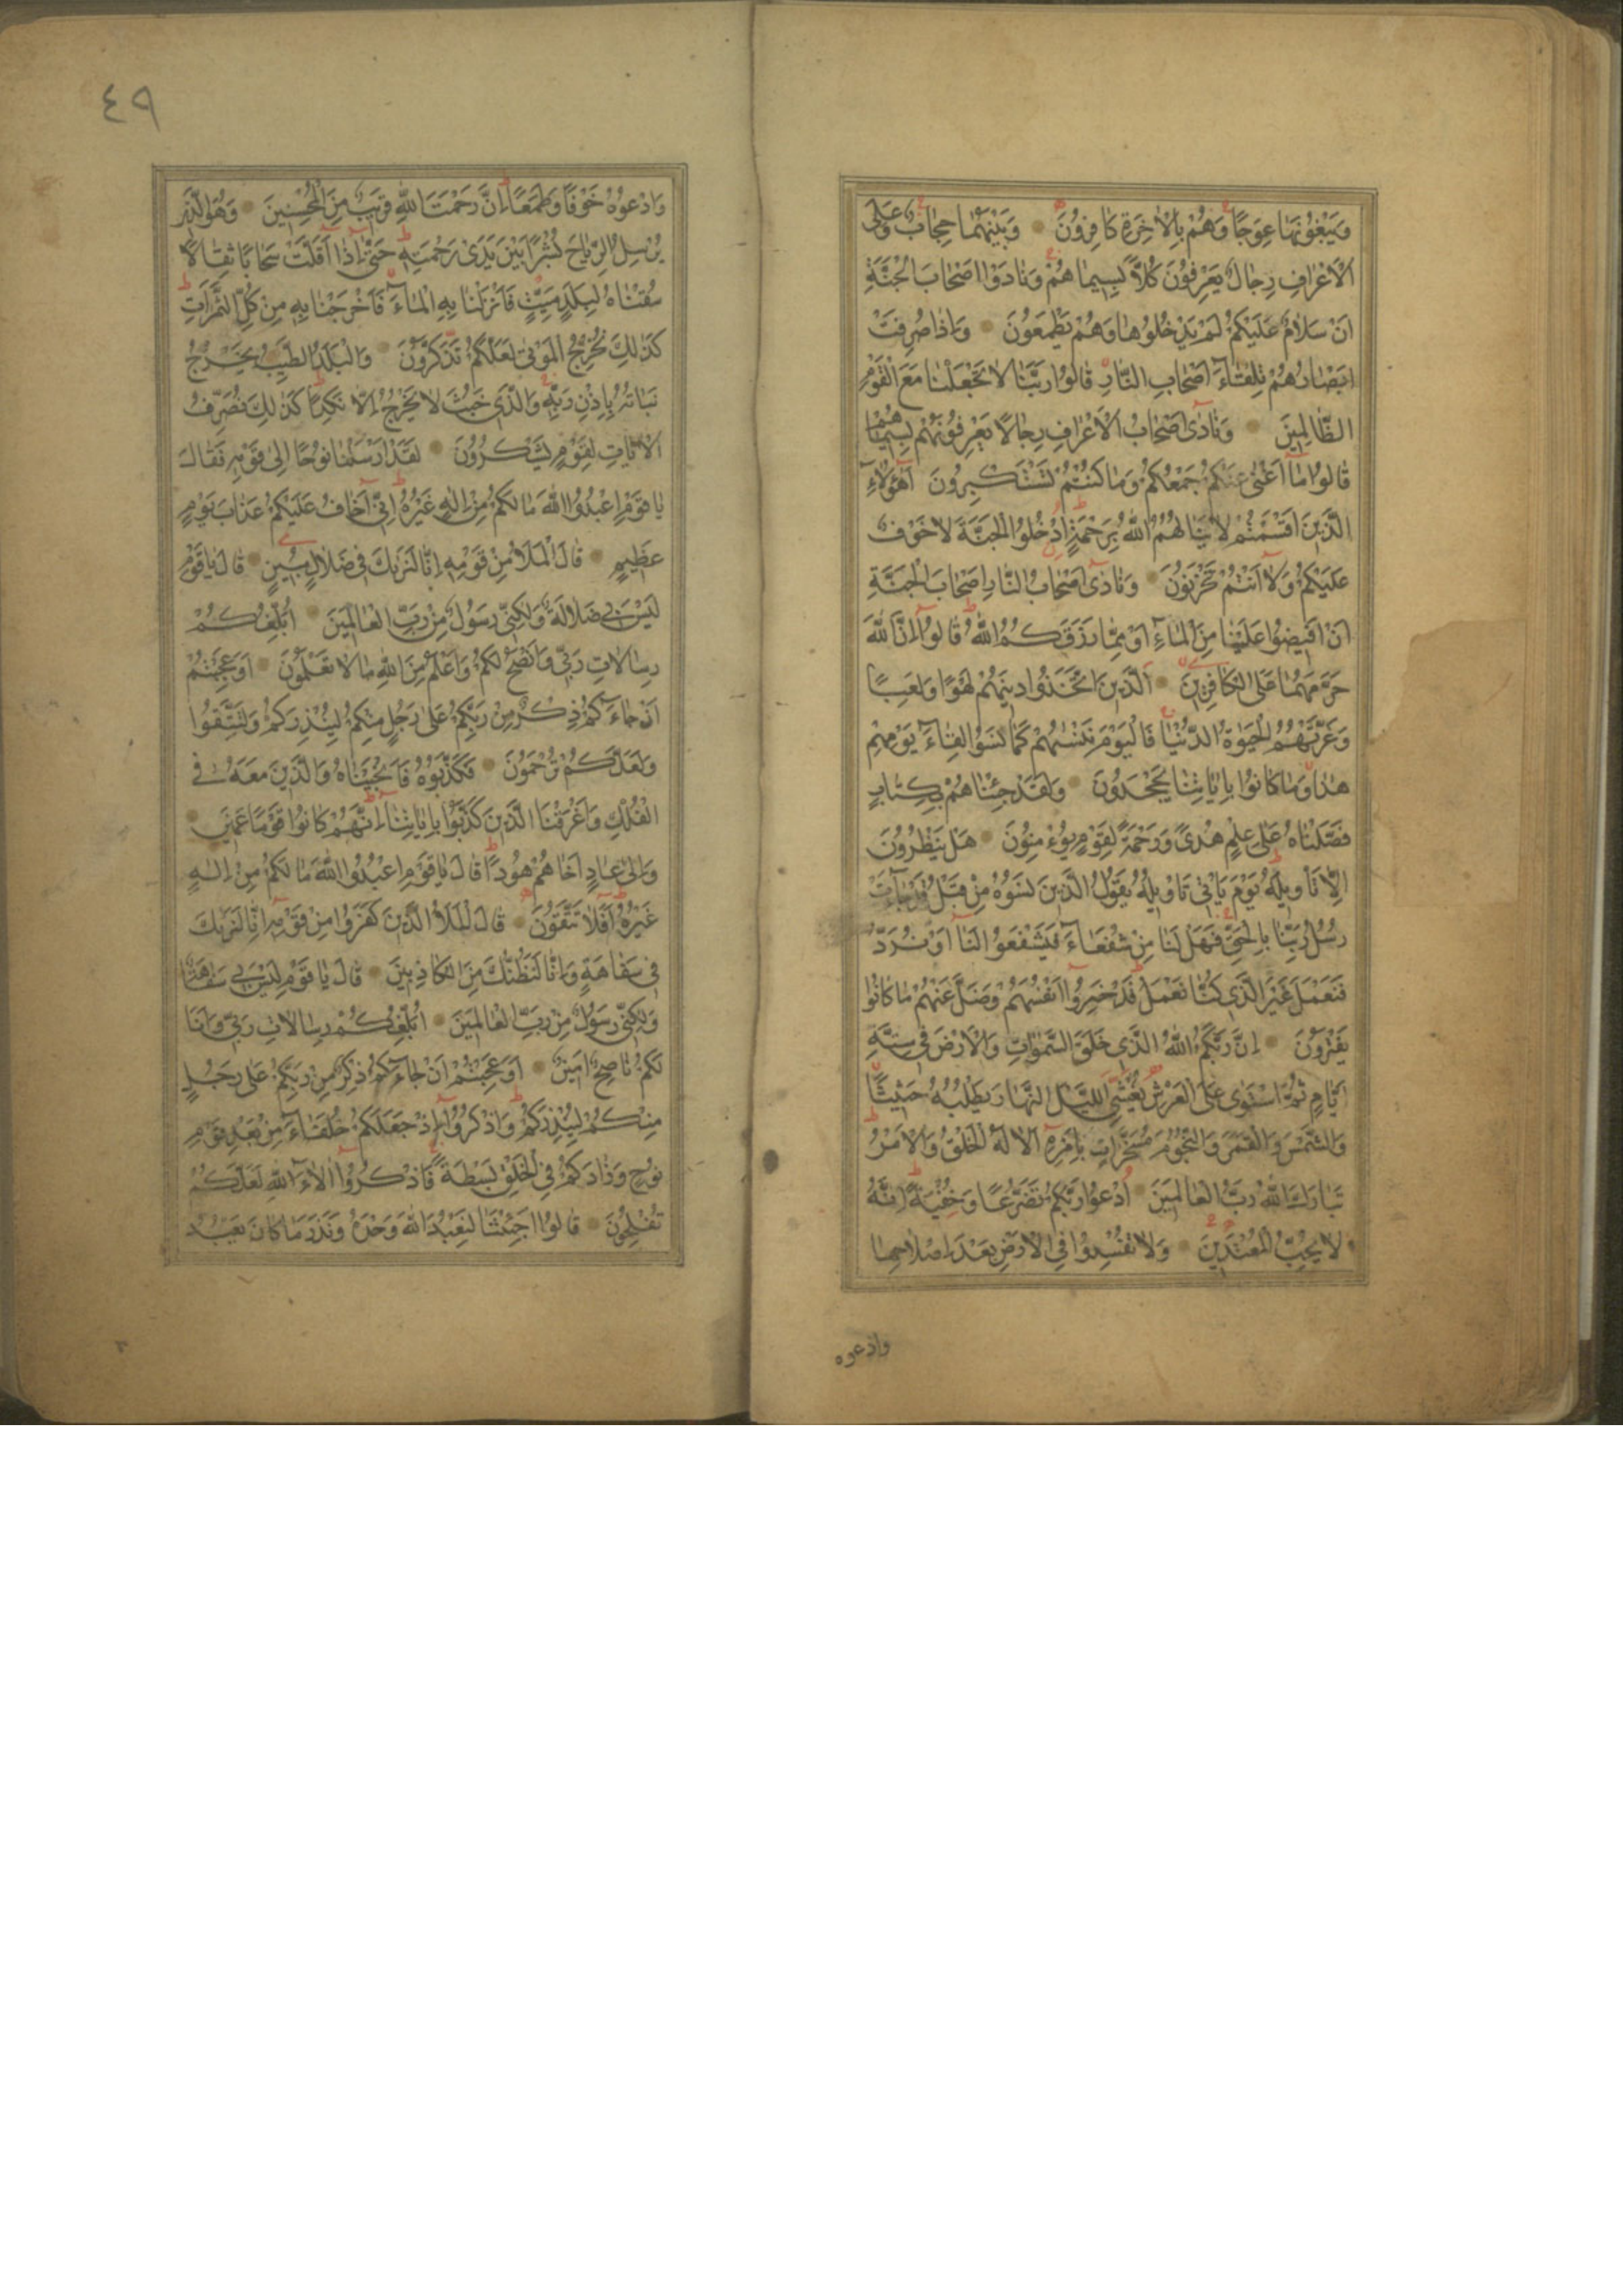 وَيَبْغُونَهَا عِوَجًا وَهُمْ بِالْاٰخِرَةِ كَافِرُونَ وَبَيْنَهُمَا حِجَابٌ وَعَلَى
الْاَعْرَافِ رِجَالٌ يَعْرِفُونَ كُلًّا بِسِيمَاهُمْ وَنَادَوْا اَصْحَابَ الْجَنَّةِ
اَنْ سَلَامٌ عَلَيْكُمْ لَمْ يَدْخُلُوهَا وَهُمْ يَطْمَعُونَ وَاِذَا صُرِفَتْ
اَبْصَارُهُمْ تِلْقَاءَ اَصْحَابِ النَّارِ قَالُوا رَبَّنَا لَا تَجْعَلْنَا مَعَ الْقَوْمِ
الظَّالِمِينَ وَنَادٰى اَصْحَابُ الْاَعْرَافِ رِجَالًا يَعْرِفُونَهُمْ بِسِيمَاهُمْ
قَالُوا مَا اَغْنٰى عَنْكُمْ جَمْعُكُمْ وَمَا كُنْتُمْ تَسْتَكْبِرُونَ اَهٰؤُلَاءِ
الَّذِينَ اَقْسَمْتُمْ لَا يَنَالُهُمُ اللّٰهُ بِرَحْمَةٍ اُدْخُلُوا الْجَنَّةَ لَا خَوْفٌ
عَلَيْكُمْ وَلَا اَنْتُمْ تَحْزَنُونَ وَنَادٰى اَصْحَابُ النَّارِ اَصْحَابَ الْجَنَّةِ
اَنْ اَفِيضُوا عَلَيْنَا مِنَ الْمَاءِ اَوْ مِمَّا رَزَقَكُمُ اللّٰهُ قَالُوا اِنَّ اللّٰهَ
حَرَّمَهُمَا عَلَى الْكَافِرِينَ اَلَّذِينَ اتَّخَذُوا دِينَهُمْ لَهْوًا وَلَعِبًا
وَغَرَّتْهُمُ الْحَيٰوةُ الدُّنْيَا فَالْيَوْمَ نَنْسٰيهُمْ كَمَا نَسُوا لِقَاءَ يَوْمِهِمْ
هٰذَا وَمَا كَانُوا بِاٰيَاتِنَا يَجْحَدُونَ وَلَقَدْ جِئْنَاهُمْ بِكِتَابٍ
فَصَّلْنَاهُ عَلٰى عِلْمٍ هُدًى وَرَحْمَةً لِقَوْمٍ يُؤْمِنُونَ هَلْ يَنْظُرُونَ
اِلَّا تَأْوِيلَهُ يَوْمَ يَأْتِي تَأْوِيلُهُ يَقُولُ الَّذِينَ نَسُوهُ مِنْ قَبْلُ قَدْ جَاءَتْ
رُسُلُ رَبِّنَا بِالْحَقِّ فَهَلْ لَنَا مِنْ شُفَعَاءَ فَيَشْفَعُوا لَنَا اَوْ نُرَدُّ
فَنَعْمَلَ غَيْرَ الَّذِي كُنَّا نَعْمَلُ قَدْ خَسِرُوا اَنْفُسَهُمْ وَضَلَّ عَنْهُمْ مَا كَانُوا
يَفْتَرُونَ اِنَّ رَبَّكُمُ اللّٰهُ الَّذِي خَلَقَ السَّمٰوَاتِ وَالْاَرْضَ فِي سِتَّةِ
اَيَّامٍ ثُمَّ اسْتَوٰى عَلَى الْعَرْشِ يُغْشِي اللَّيْلَ النَّهَارَ يَطْلُبُهُ حَثِيثًا
وَالشَّمْسَ وَالْقَمَرَ وَالنُّجُومَ مُسَخَّرَاتٍ بِاَمْرِهِ اَلَا لَهُ الْخَلْقُ وَالْاَمْرُ
تَبَارَكَ اللّٰهُ رَبُّ الْعَالَمِينَ اُدْعُوا رَبَّكُمْ تَضَرُّعًا وَخُفْيَةً اِنَّهُ
لَا يُحِبُّ الْمُعْتَدِينَ وَلَا تُفْسِدُوا فِي الْاَرْضِ بَعْدَ اِصْلَاحِهَا
وادعوه
٤٩
وَادْعُوهُ خَوْفًا وَطَمَعًا اِنَّ رَحْمَتَ اللّٰهِ قَرِيبٌ مِنَ الْمُحْسِنِينَ وَهُوَ الَّذِي
يُرْسِلُ الرِّيَاحَ بُشْرًا بَيْنَ يَدَيْ رَحْمَتِهِ حَتّٰى اِذَا اَقَلَّتْ سَحَابًا ثِقَالًا
سُقْنَاهُ لِبَلَدٍ مَيِّتٍ فَاَنْزَلْنَا بِهِ الْمَاءَ فَاَخْرَجْنَا بِهِ مِنْ كُلِّ الثَّمَرَاتِ
كَذٰلِكَ نُخْرِجُ الْمَوْتٰى لَعَلَّكُمْ تَذَكَّرُونَ وَالْبَلَدُ الطَّيِّبُ يَخْرُجُ
نَبَاتُهُ بِاِذْنِ رَبِّهِ وَالَّذِي خَبُثَ لَا يَخْرُجُ اِلَّا نَكِدًا كَذٰلِكَ نُصَرِّفُ
الْاٰيَاتِ لِقَوْمٍ يَشْكُرُونَ لَقَدْ اَرْسَلْنَا نُوحًا اِلٰى قَوْمِهِ فَقَالَ
يَا قَوْمِ اعْبُدُوا اللّٰهَ مَا لَكُمْ مِنْ اِلٰهٍ غَيْرُهُ اِنِّي اَخَافُ عَلَيْكُمْ عَذَابَ يَوْمٍ
عَظِيمٍ قَالَ الْمَلَاُ مِنْ قَوْمِهِ اِنَّا لَنَرٰيكَ فِي ضَلَالٍ مُبِينٍ قَالَ يَا قَوْمِ
لَيْسَ بِي ضَلَالَةٌ وَلٰكِنِّي رَسُولٌ مِنْ رَبِّ الْعَالَمِينَ اُبَلِّغُكُمْ
رِسَالَاتِ رَبِّي وَاَنْصَحُ لَكُمْ وَاَعْلَمُ مِنَ اللّٰهِ مَا لَا تَعْلَمُونَ اَوَعَجِبْتُمْ
اَنْ جَاءَكُمْ ذِكْرٌ مِنْ رَبِّكُمْ عَلٰى رَجُلٍ مِنْكُمْ لِيُنْذِرَكُمْ وَلِتَتَّقُوا
وَلَعَلَّكُمْ تُرْحَمُونَ فَكَذَّبُوهُ فَاَنْجَيْنَاهُ وَالَّذِينَ مَعَهُ فِي
الْفُلْكِ وَاَغْرَقْنَا الَّذِينَ كَذَّبُوا بِاٰيَاتِنَا اِنَّهُمْ كَانُوا قَوْمًا عَمِينَ
وَاِلٰى عَادٍ اَخَاهُمْ هُودًا قَالَ يَا قَوْمِ اعْبُدُوا اللّٰهَ مَا لَكُمْ مِنْ اِلٰهٍ
غَيْرُهُ اَفَلَا تَتَّقُونَ قَالَ الْمَلَاُ الَّذِينَ كَفَرُوا مِنْ قَوْمِهِ اِنَّا لَنَرٰيكَ
فِي سَفَاهَةٍ وَاِنَّا لَنَظُنُّكَ مِنَ الْكَاذِبِينَ قَالَ يَا قَوْمِ لَيْسَ بِي سَفَاهَةٌ
وَلٰكِنِّي رَسُولٌ مِنْ رَبِّ الْعَالَمِينَ اُبَلِّغُكُمْ رِسَالَاتِ رَبِّي وَاَنَا
لَكُمْ نَاصِحٌ اَمِينٌ اَوَعَجِبْتُمْ اَنْ جَاءَكُمْ ذِكْرٌ مِنْ رَبِّكُمْ عَلٰى رَجُلٍ
مِنْكُمْ لِيُنْذِرَكُمْ وَاذْكُرُوا اِذْ جَعَلَكُمْ خُلَفَاءَ مِنْ بَعْدِ قَوْمِ
نُوحٍ وَزَادَكُمْ فِي الْخَلْقِ بَسْطَةً فَاذْكُرُوا اٰلَاءَ اللّٰهِ لَعَلَّكُمْ
تُفْلِحُونَ قَالُوا اَجِئْتَنَا لِنَعْبُدَ اللّٰهَ وَحْدَهُ وَنَذَرَ مَا كَانَ يَعْبُدُ